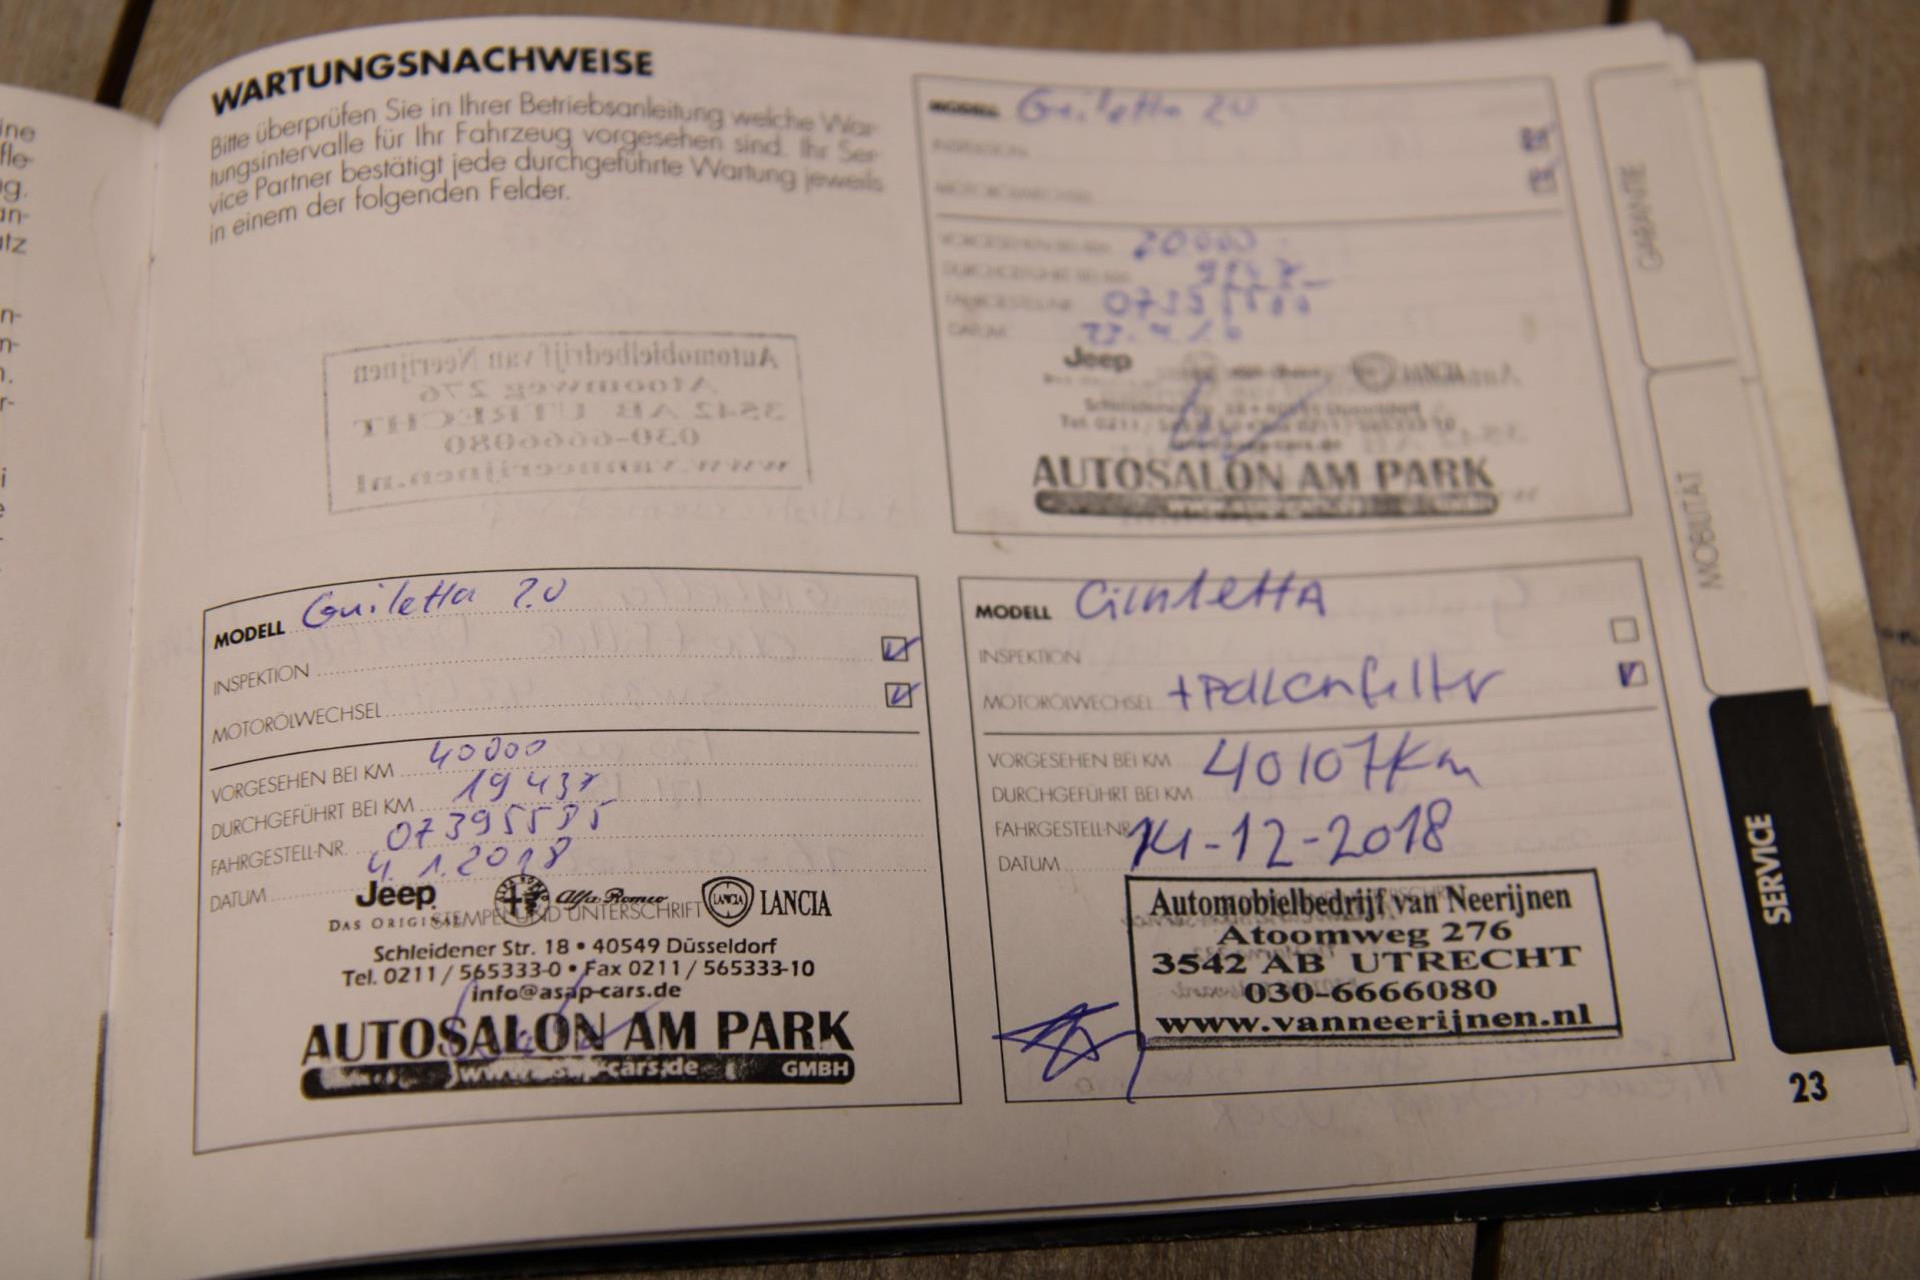 WARTUNGSNACHWEISE
Bitte überprüfen Sie in Ihrer Betriebsanleitung welche War-
tungsintervalle für Ihr Fahrzeug vorgesehen sind. Ihr Ser-
vice Partner bestätigt jede durchgeführte Wartung jeweils
in einem der folgenden Felder.
MODELL Guiletta 20
INSPEKTION
MOTORÖLWECHSEL
VORGESEHEN BEI KM 20000
DURCHGEFÜHRT BEI KM
FAHRGESTELL-NR.
DATUM
Jeep
LANCIA
AUTOSALON AM PARK
MODELL Guiletta 2.0
INSPEKTION
MOTORÖLWECHSEL
VORGESEHEN BEI KM 40000
DURCHGEFÜHRT BEI KM 19437
FAHRGESTELL-NR. 07395585
DATUM 4.1.2018
Jeep Alfa Romeo LANCIA LANCIA
DAS ORIGINAL
STEMPEL UND UNTERSCHRIFT
Schleidener Str. 18 • 40549 Düsseldorf
Tel. 0211 / 565333-0 • Fax 0211 / 565333-10
info@asap-cars.de
AUTOSALON AM PARK
www.asap-cars.de GMBH
MODELL Giulietta
INSPEKTION
MOTORÖLWECHSEL +Pollenfilter
VORGESEHEN BEI KM 40107Km
DURCHGEFÜHRT BEI KM
FAHRGESTELL-NR.
DATUM 14-12-2018
Automobielbedrijf van Neerijnen
Atoomweg 276
3542 AB UTRECHT
030-6666080
www.vanneerijnen.nl
GARANTIE
MOBILITÄT
SERVICE
23